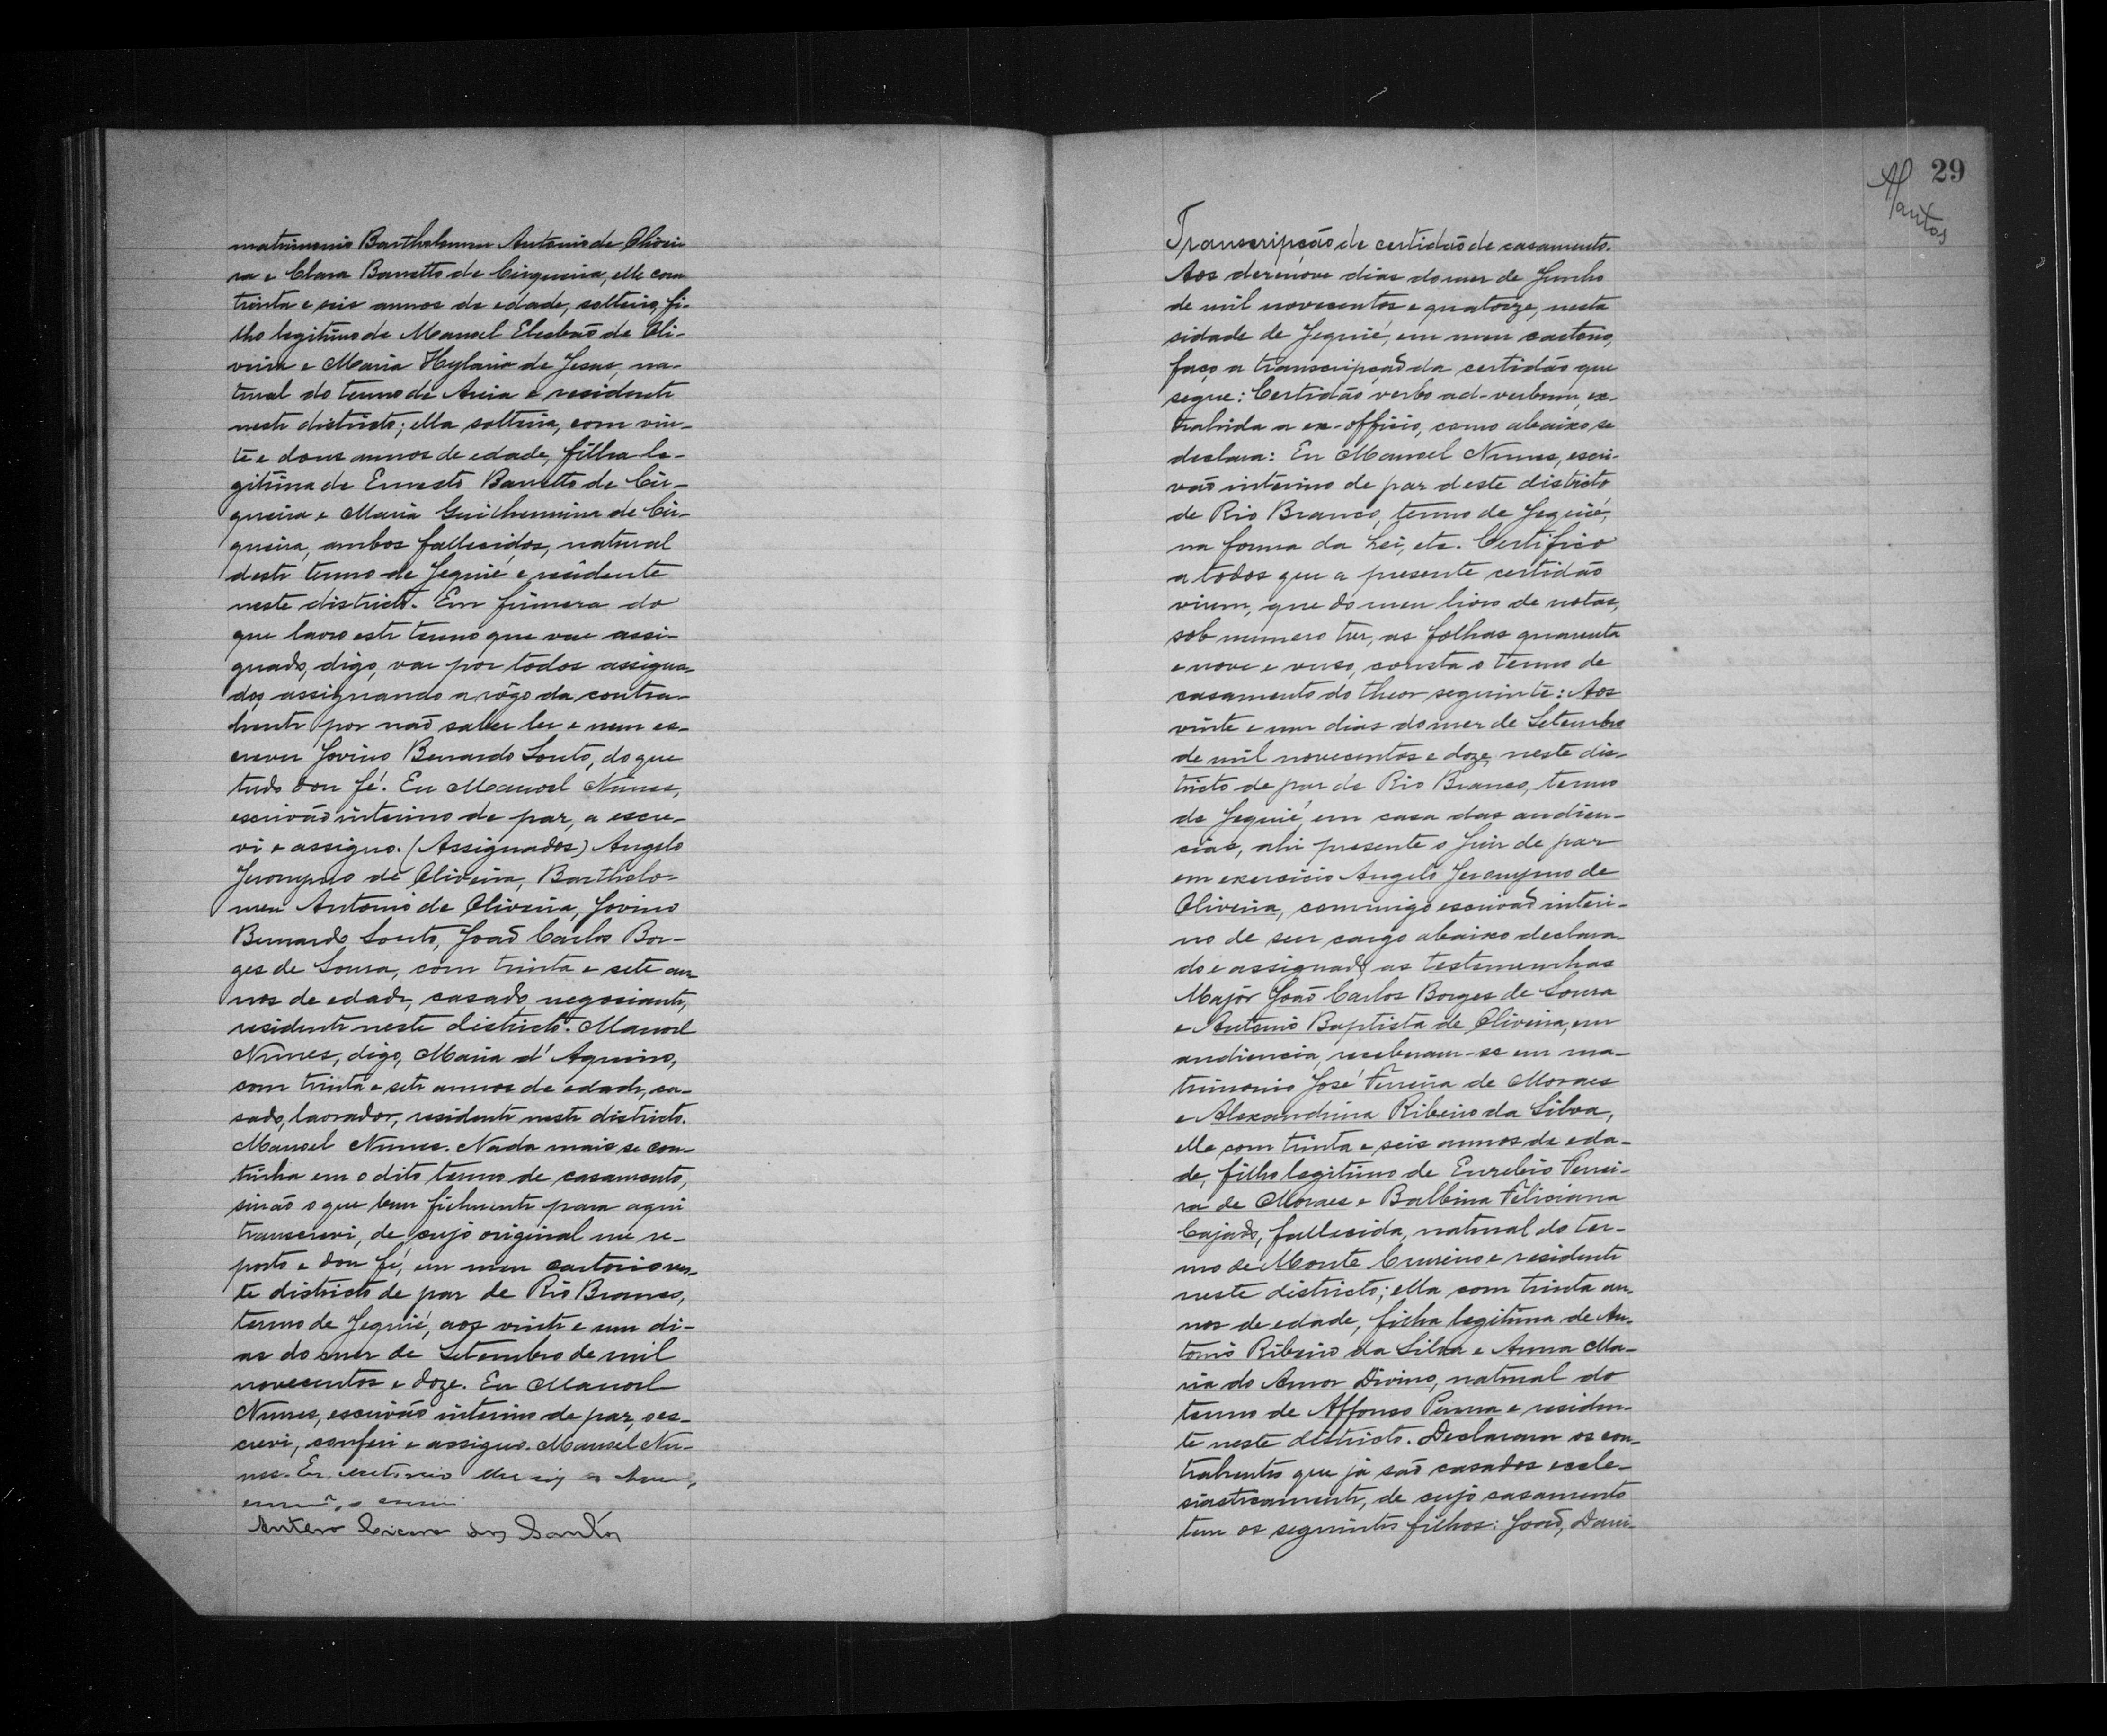 matrimonio Bartholomeu Antonio de Olivei
ra e Clara Barretto de Cirqueira, elle com
trinta e seis annos de edade, solteiro, fi-
lho legitimo de Manoel Elesbaõ de Oli-
veira e Maria Hylaria de Jesus, na-
tural do termo de Areia e residente
neste districto; ella solteira, com vin-
te e dous annos de edade, filha le-
gitima de Ernesto Barretto de Cir-
queira e Maria Guilhermina de Cir-
queira, ambos fallecidos, natural
deste termo de Jequié e residente
neste districto. Em firmera do
que lavro este termo que vae assi-
gnado, digo, vae por todos assigna-
dos, assignando a rôgo da contra-
hente por naõ saber ler e nem es-
crever Jovino Bernardo Souto, do que
tudo dou fé. Eu Manoel Nunes,
escrivão interino de paz, a escre-
vi e assigno. (Assignados) Angelo
Jeronymo de Oliveira, Bartholo-
meu Antonio de Oliveira, Jovino
Bernardo Souto, Joaõ Carlos Bor-
ges de Sousa, com trinta e sete an
nos de edade, casado, negociante,
residente neste districto. Manoel
Nunes, digo, Maria d'Aquino,
com trinta e sete annos de edade, ca-
sado, lavrador, residente neste districto.
Manoel Nunes. Nada mais se con-
tinha em o dito termo de casamento,
sinão o que bem fielmente para aqui
transcrevi, de cujo original me re-
porto e dou fé, em meu cartorio nes-
te districto de paz de Rio Branco,
termo de Jequié, aos vinte e um di-
as do mez de Setembro de mil
novecentos e doze. Eu Manoel
Nunes, escrivão interino de paz, o es-
crevi, conferi e assigno. Manoel Nu-
nes. Eu
Antero Cicero dos Santos
29
Santos
Transcripção de certidão de casamento.
Aos dezenove dias do mez de Junho
de mil novecentos e quatorze, nesta
cidade de Jequié, em meu cartorio,
faço a transcripçaõ da certidão que
segue: Certidão verbo ad-verbum, ex-
trahida a ex-officio, como abaixo se
declara: Eu Manoel Nunes, escri-
vaõ interino de paz deste districto
de Rio Branco, termo de Jequié,
na forma da Lei, etc. Certifico
a todos que a presente certidão
virem, que do meu livro de notas,
sob numero tres, as folhas quarenta
e nove e verso, consta o termo de
casamento do theor seguinte: Aos
vinte e um dias do mez de Setembro
de mil novecentos e doze, neste dis-
tricto de paz de Rio Branco, termo
de Jequié, em casa das audien-
cias, ahi presente o Juiz de paz
em exercicio Angelo Jeronymo de
Oliveira, commigo escrivaõ interi-
no de seu cargo abaixo declara-
do e assignado, as testemunhas
Majór Joaõ Carlos Borges de Sousa
e Antonio Baptista de Oliveira, em
audiencia, receberam-se em ma-
trimonio José Ferreira de Moraes
e Alexandrina Ribeiro da Silva,
elle com trinta e seis annos de eda-
de, filho legitimo de Euzebio Ferrei-
ra de Moraes e Balbina Feliciana
Cajado, fallecida, natural do ter-
mo de Monte Cruzeiro e residente
neste districto; ella com trinta an-
nos de edade, filha legitima de An-
tonio Ribeiro da Silva e Anna Ma-
ria do Amor Divino, natural do
termo de Affonso Penna e residen-
te neste districto. Declaram os con-
trahentes que já saõ casados eccle-
siasticamente, de cujo casamento
tem os seguintes filhos: Joaõ, Dani-